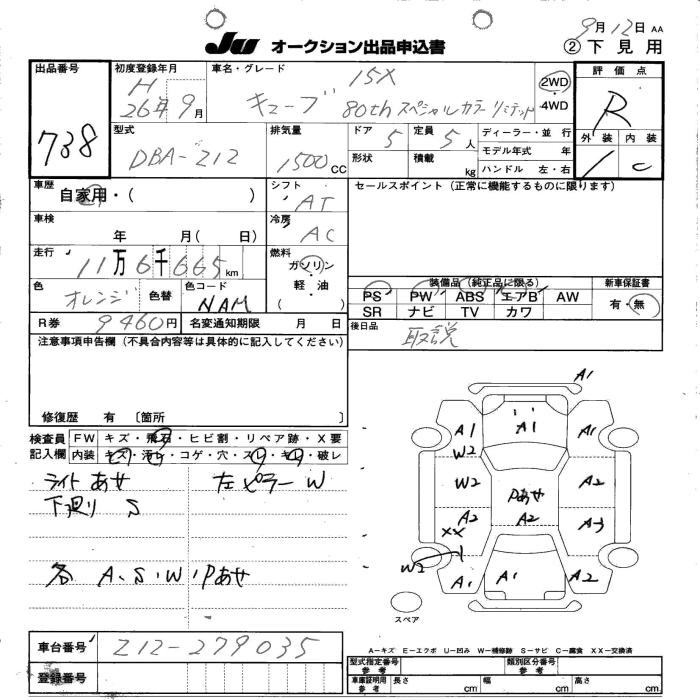 9月12日 AA
JU オークション出品申込書 ② 下見用
出品番号 738
初度登録年月 H 26年9月
車名・グレード 15X
キューブ 80th スペシャルカラーリミテッド
2WD・4WD
評価点 R
外装 内装
1 C
型式 DBA-Z12
排気量 1500 CC
ドア 5 定員 5人
形状 積載 kg
ディーラー・並行
モデル年式 年
ハンドル 左・右
車歴 自家用・( )
シフト AT
セールスポイント(正常に機能するものに限ります)
車検 年 月( 日)
冷房 AC
走行 11万6千665km
燃料 ガソリン・軽油 ( )
色 オレンジ 色替 色コード NAM
装備品(純正品に限る) 新車保証書
PS PW ABS エアB AW 有・無
SR ナビ TV カワ
R券 9460円 名変通知期限 月 日
後日品 取説
注意事項申告欄(不具合内容等は具体的に記入してください)
修復歴 有 〔箇所 〕
検査員記入欄 FW キズ・飛石・ヒビ割・リペア跡・X要
内装 キズ・汚レ・コゲ・穴・スレ・キレ・破レ
ライトあせ 左ピラーW
下廻り S
各 A、S、W、Pあせ
A1
A1 A1 A1
W2
W2 Pあせ A2
A2 A2 A3
XX
W2
A1 A1 A2
スペア
A-キズ E-エクボ U-凹み W-補修跡 S-サビ C-腐食 XX-交換済
車台番号 Z12-279035
登録番号
型式指定番号 参考 類別区分番号 参考
車庫証明用 参考 長さ cm 幅 cm 高さ cm